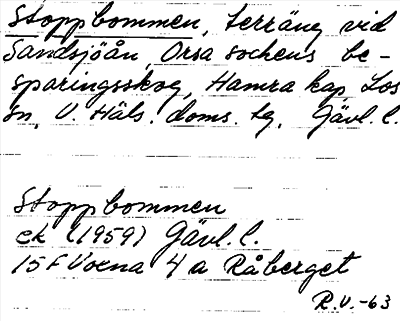 Stoppbommen, terräng vid
Sandsjöån, Orsa sockens be-
sparingsskog, Hamra kap Los
sn, V. Häls. doms. tg, Gävl. l.
Stoppbommen
ek (1959) Gävl. l.
15 F Voxna 4 a Råberget
R.V. -63